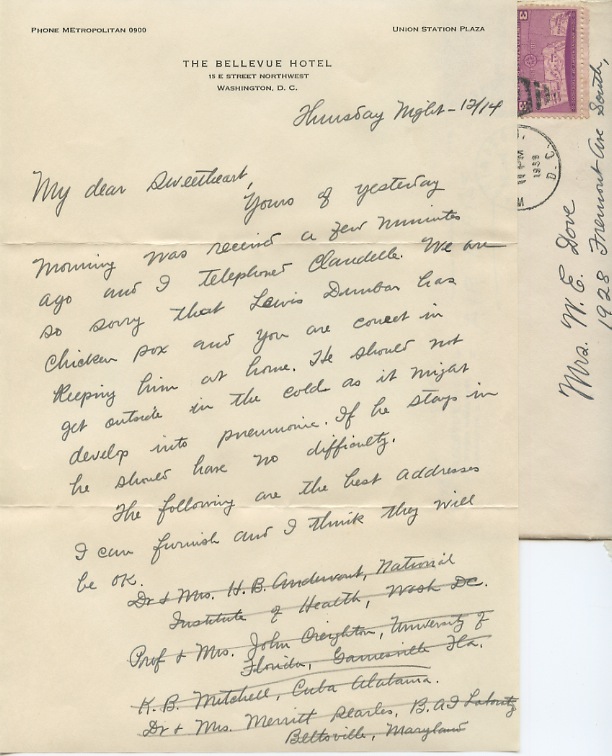 PHONE METROPOLITAN 0900
UNION STATION PLAZA
THE BELLEVUE HOTEL
15 E STREET NORTHWEST
WASHINGTON, D. C.
Thursday Night - 12/14
My dear Sweetheart,
Yours of yesterday
morning was received a few minutes
ago and I telephoned Claudelle. We are
so sorry that Lewis Dunbar has
chicken pox and you are correct in
keeping him at home. He should not
get outside in the cold as it might
develop into pneumonia. If he stays in
he should have no difficulty.
The following are the best addresses
I can furnish and I think they will
be OK.
Dr & Mrs. H. B. Andervont, National
Institute of Health, Wash DC.
Prof & Mrs. John Creighton, University of
Florida, Gainesville Fla.
K. B. Mitchell, Cuba Alabama.
Dr & Mrs. Merritt Searles, B.A.I.
Beltsville, Maryland
3
3
11 PM
1939
D. C.
Mrs. W. E. Dove
1928 Fremont Ave South,